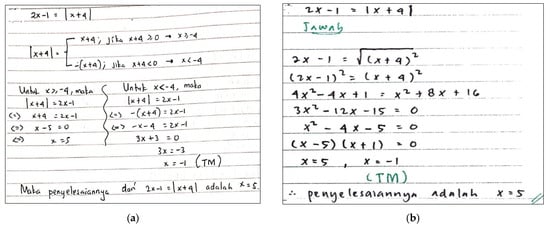 2x-1 = |x+4|
|x+4| =
x+4; jika x+4 ≥ 0 → x ≥ -4
-(x+4); jika x+4 < 0 → x < -4
Untuk x ≥ -4, maka
|x+4| = 2x-1
(=) x+4 = 2x-1
(=) x-5 = 0
(=) x = 5
Untuk x < -4, maka
|x+4| = 2x-1
(=) -(x+4) = 2x-1
(=) -x-4 = 2x-1
3x+3 = 0
3x = -3
x = -1 (TM)
Maka penyelesaiannya dari 2x-1 = |x+4| adalah x=5.
(a)
2x-1 = |x+4|
Jawab
2x-1 = √(x+4)²
(2x-1)² = (x+4)²
4x²-4x+1 = x²+8x+16
3x²-12x-15 = 0
x²-4x-5 = 0
(x-5)(x+1) = 0
x=5 , x=-1
(TM)
∴ penyelesaiannya adalah x=5
(b)